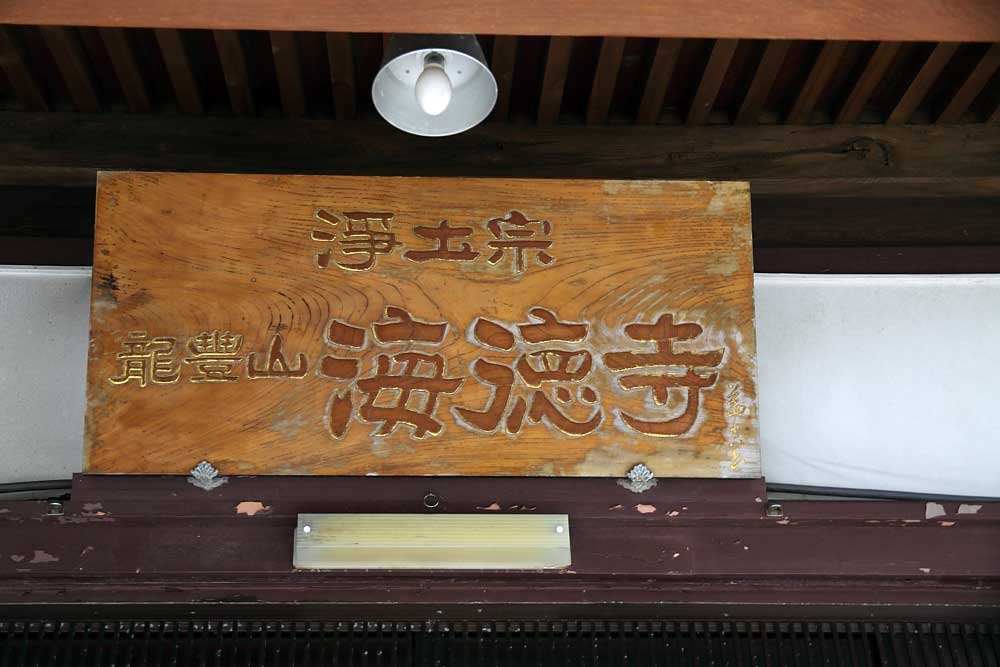 淨土宗
龍豐山 海德寺